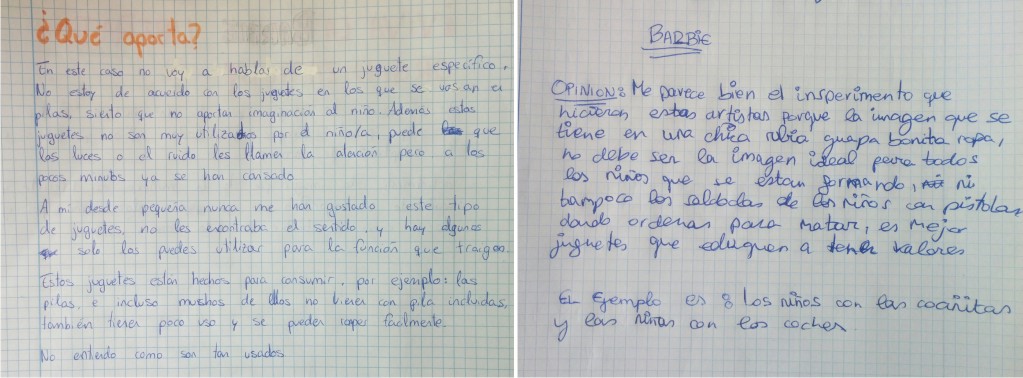 ¿Qué aporta?
En este caso no voy a hablar de un juguete específico.
No estoy de acuerdo con los juguetes en los que se usan
pilas, siento que no aportan imaginación al niño. Además estos
juguetes no son muy utilizados por el niño/a, puede que
las luces o el ruido les llamen la atención pero a los
pocos minutos ya se han cansado
A mi desde pequeña nunca me han gustado este tipo
de juguetes, no les encontraba el sentido, y hay algunos
solo los puedes utilizar para la función que traigan.
Estos juguetes están hechos para consumir, por ejemplo: las
pilas, e incluso muchos de ellos no vienen con pila incluidas,
también tienen poco uso y se pueden romper facilmente.
No entiendo como son tan usados
BARBIE
OPINION: Me parece bien el insperimento que
hicieron estas artistas porque la imagen que se
tiene en una chica rubia guapa bonita ropa,
no debe ser la imagen ideal para todos
los niños que se estan formando, ni
tampoco los soldados de los niños con pistolas
dando ordenes para matar, es mejor
juguetes que eduquen a tener valores
EL Ejemplo es : los niños con las cocinitas
y las niñas con los coches